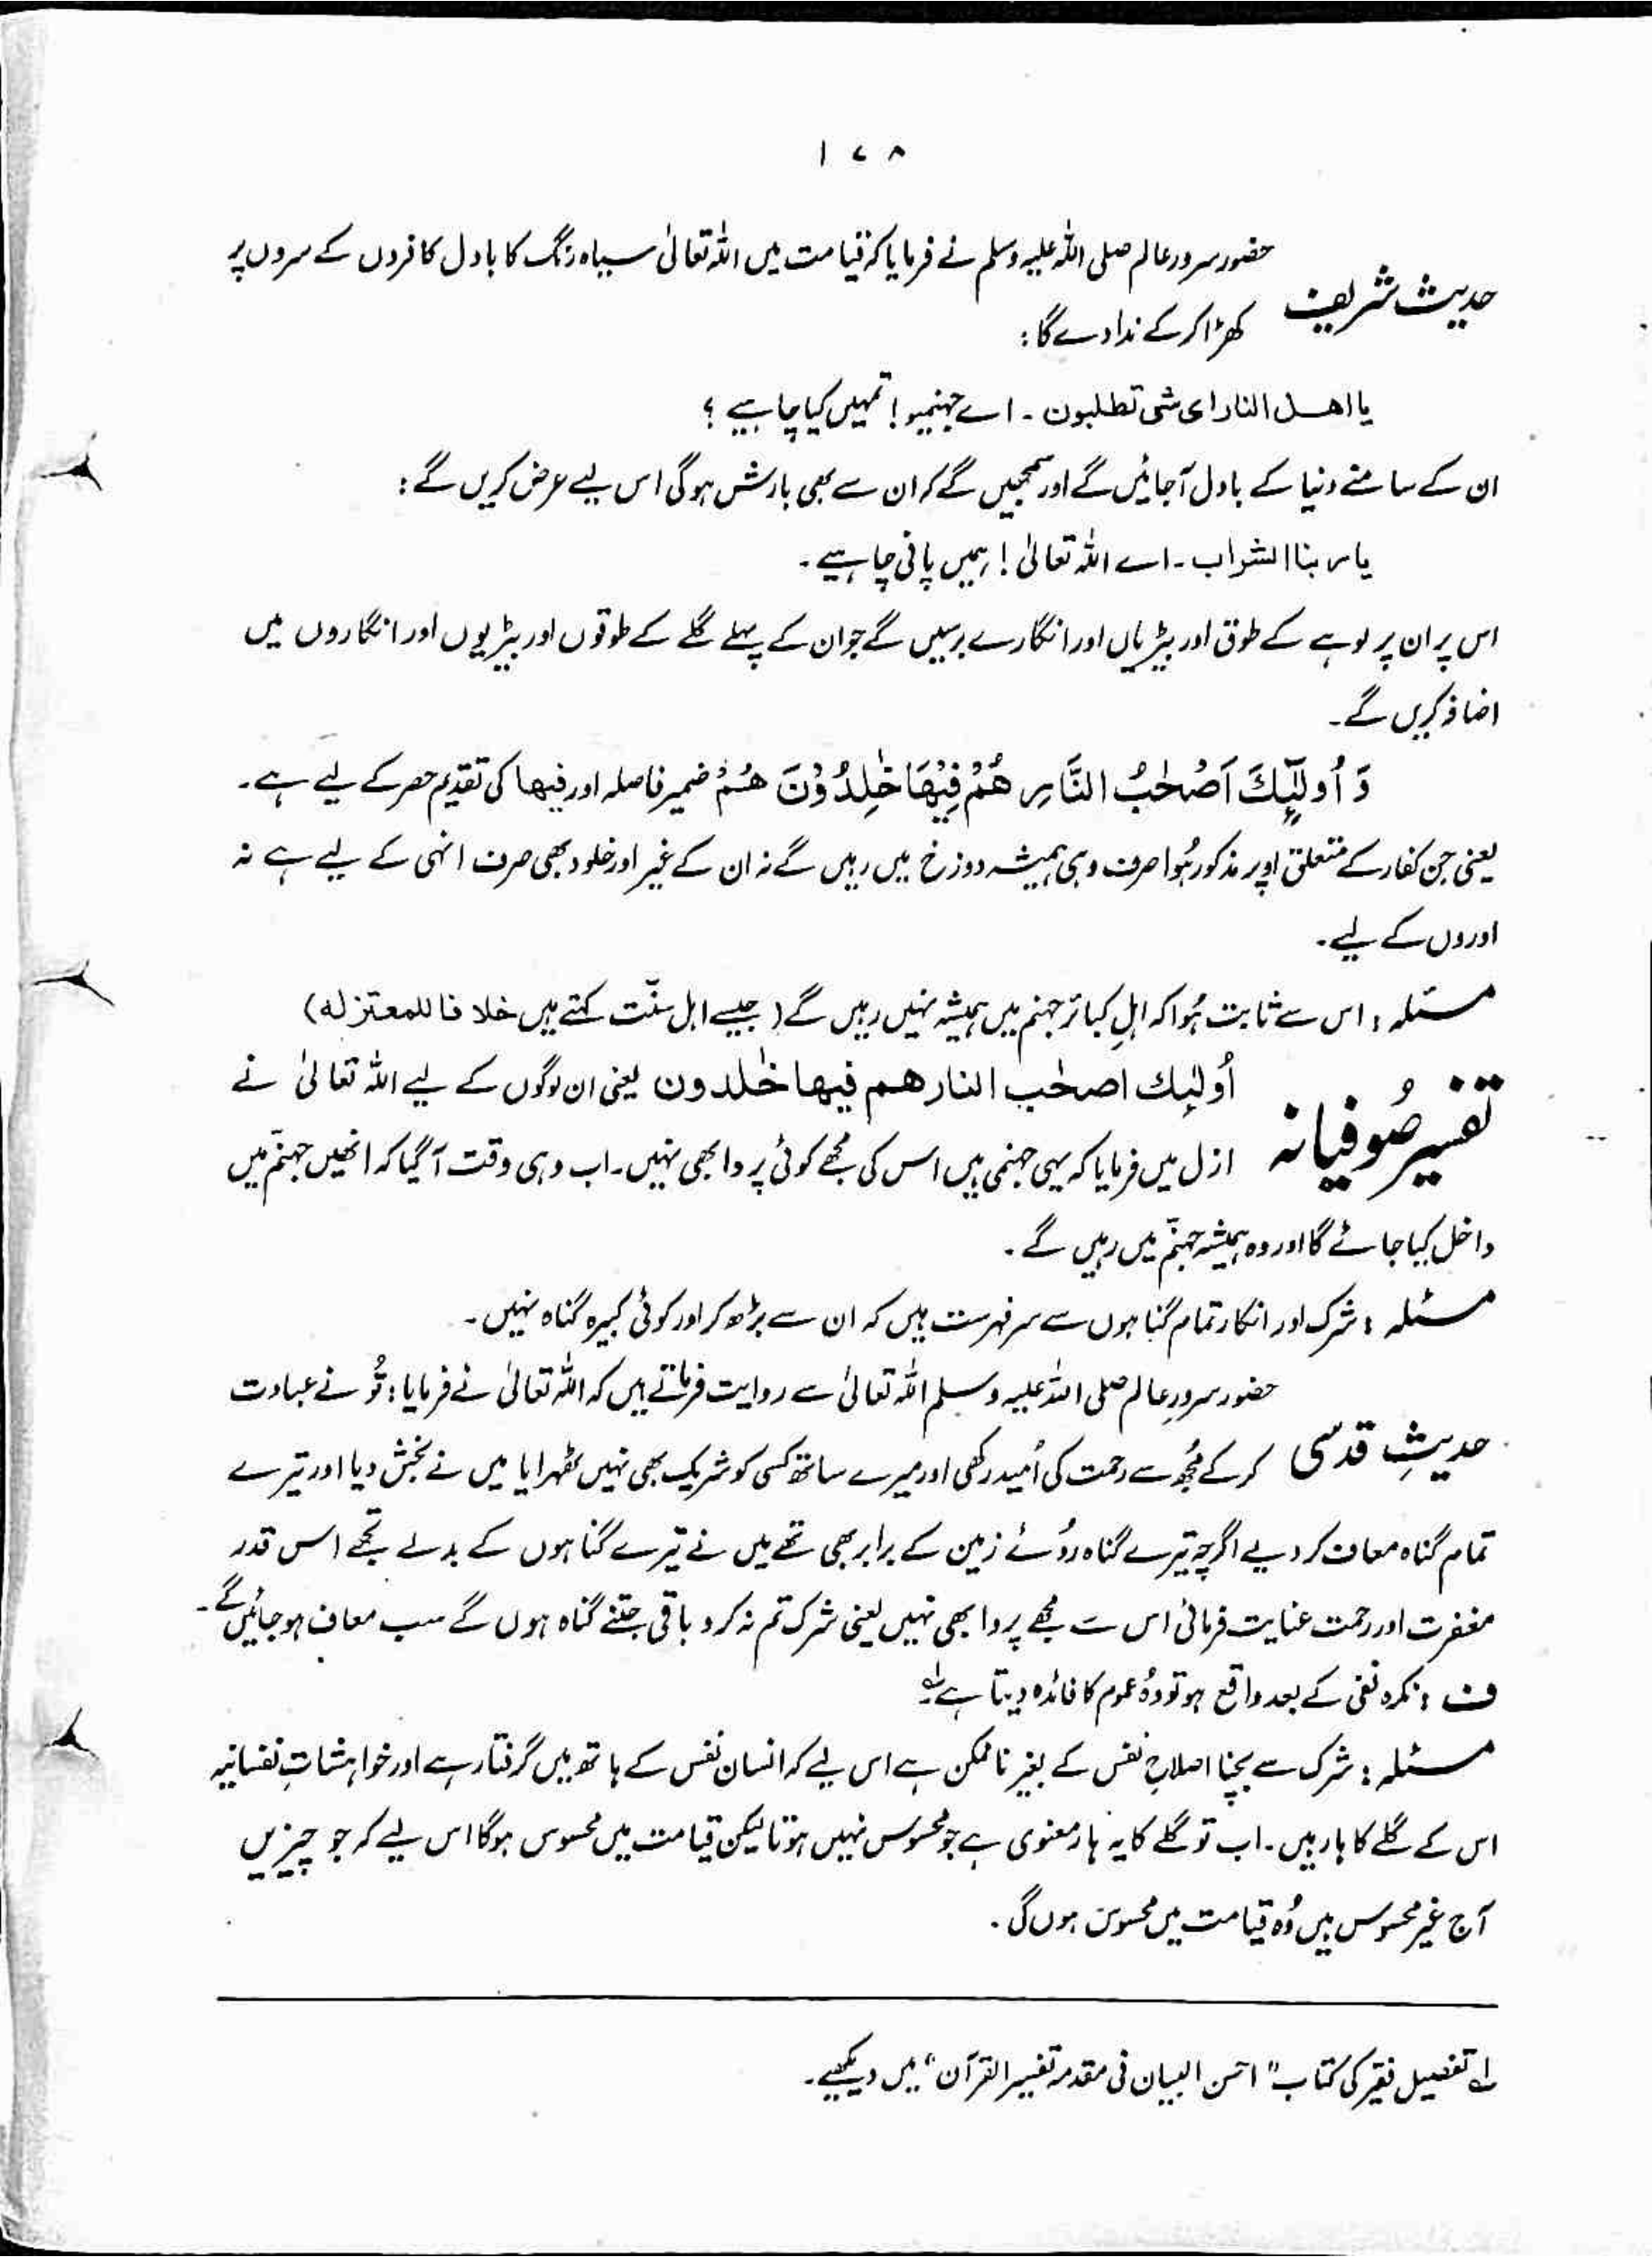 ۱۷۸
حضور سرور عالم صلی اللہ علیہ وسلم نے فرمایا کہ قیامت میں اللہ تعالیٰ سیاہ رنگ کا بادل کافروں کے سروں پر
حدیث شریف
کھڑا کر کے ندا دے گا:
یا اھل النار ای شی تطلبون ۔ اے جہنمیو! تمہیں کیا چاہیے ؟
ان کے سامنے دنیا کے بادل آجائیں گے اور سمجھیں گے کہ ان سے بھی بارش ہوگی اس لیے عرض کریں گے:
یا ربنا الشراب ۔ اے اللہ تعالیٰ! ہمیں پانی چاہیے ۔
اس پر ان پر لوہے کے طوق اور بیڑیاں اور انگارے برسیں گے جو ان کے پہلے گلے کے طوقوں اور بیڑیوں اور انگاروں میں
اضافہ کریں گے ۔
وَ اُولٰٓئِكَ اَصْحٰبُ النَّارِ هُمْ فِيْهَا خٰلِدُوْنَ هُمْ ضمیر فاصلہ اور فیھا کی تقدیم حصر کے لیے ہے ۔
یعنی جن کفار کے متعلق اوپر مذکور ہُوا صرف وہی ہمیشہ دوزخ میں رہیں گے نہ ان کے غیر اور خلود بھی صرف انہی کے لیے ہے نہ
اوروں کے لیے ۔
مسئلہ : اس سے ثابت ہُوا کہ اہلِ کبائر جہنم میں ہمیشہ نہیں رہیں گے ( جیسے اہل سنّت کہتے ہیں خلافا للمعتزلہ )
اُولٰئك اصحٰب النار هم فيها خٰلدون یعنی ان لوگوں کے لیے اللہ تعالیٰ نے
تفسیر صُوفیانہ
ازل میں فرمایا کہ یہی جہنمی ہیں اس کی مجھے کوئی پروا بھی نہیں ۔ اب وہی وقت آ گیا کہ انھیں جہنّم میں
داخل کیا جائے گا اور وہ ہمیشہ جہنّم میں رہیں گے ۔
مسئلہ : شرک اور انکار تمام گناہوں سے سرفہرست ہیں کہ ان سے بڑھ کر اور کوئی کبیرہ گناہ نہیں ۔
حضور سرورِ عالم صلی اللہ علیہ وسلم اللہ تعالیٰ سے روایت فرماتے ہیں کہ اللہ تعالیٰ نے فرمایا : تُو نے عبادت
حدیثِ قدسی
کر کے مُجھ سے رحمت کی اُمید رکھی اور میرے ساتھ کسی کو شریک بھی نہیں ٹھہرایا میں نے بخش دیا اور تیرے
تمام گناہ معاف کر دیے اگرچہ تیرے گناہ رُوئے زمین کے برابر بھی تھے میں نے تیرے گناہوں کے بدلے تجھے اس قدر
مغفرت اور رحمت عنایت فرمائی اس سے مجھے پروا بھی نہیں یعنی شرک تم نہ کرو باقی جتنے گناہ ہوں گے سب معاف ہوجائیں گے ۔
ف : نکرہ نفی کے بعد واقع ہو تو وہُ عموم کا فائدہ دیتا ہے لہ
مسئلہ : شرک سے بچنا اصلاحِ نفس کے بغیر ناممکن ہے اس لیے کہ انسان نفس کے ہاتھ میں گرفتار ہے اور خواہشاتِ نفسانیہ
اس کے گلے کا ہار ہیں ۔ اب تو گلے کا یہ ہار معنوی ہے جو محسوس نہیں ہوتا لیکن قیامت میں محسوس ہوگا اس لیے کہ جو چیزیں
آج غیر محسوس ہیں وُہ قیامت میں محسوس ہوں گی ۔
لہ تفصیل فقیر کی کتاب " احسن البیان فی مقدمہ تفسیر القرآن " میں دیکھیے ۔